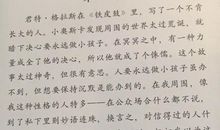 君特·格拉斯在《铁皮鼓》里，写了一个不肯
长大的人。小奥斯卡发现周围的世界太过荒诞，就
暗下决心要永远做小孩子。在冥冥之中，有一种力
量成全了他的决心，所以他就成了个侏儒。这个故
事太过神奇，但很有意思。人要永远做小孩子虽办
不到，但想要保持沉默是能办到的。在我周围，像
我这种性格的人特多——在公众场合什么都不说，
到了私下里则妙语连珠，换言之，对信得过的人什